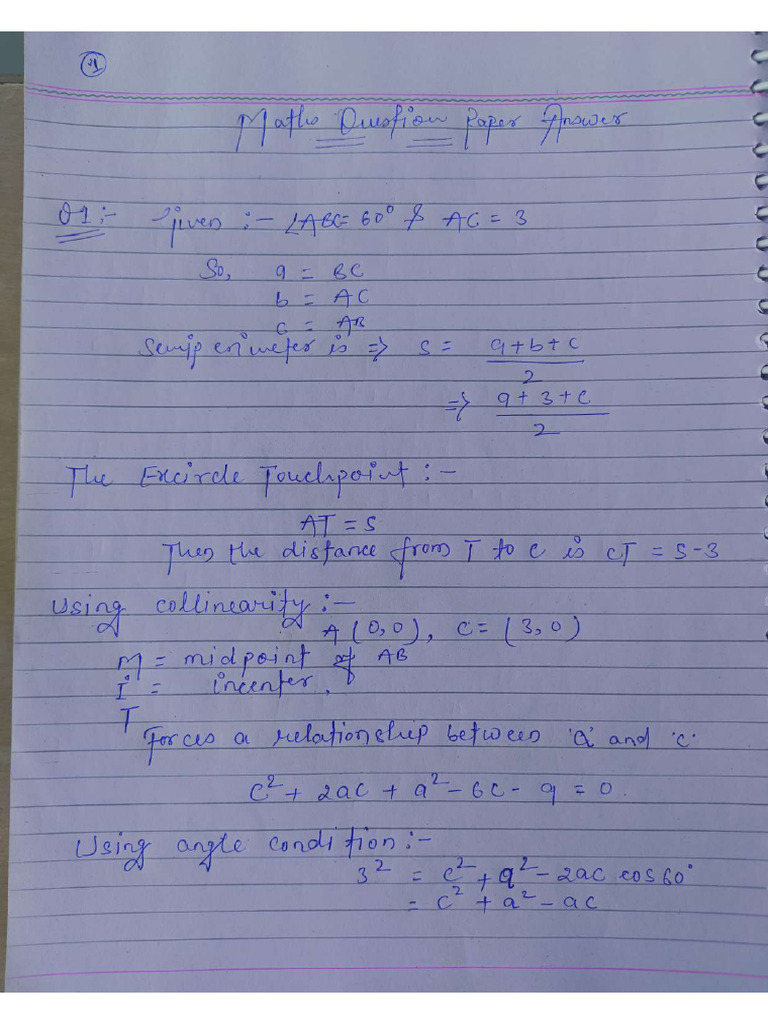 1
Maths Question Paper Answer
Q1:- Given :- ∠ABC=60° & AC = 3
So, a = BC
b = AC
c = AB
Semiperimeter is => s = a+b+c/2
=> a+3+c/2
The Excircle Touchpoint :-
AT = s
Then the distance from T to C is CT = s-3
Using collinearity :-
A(0,0), C = (3,0)
M = midpoint of AB
I = incenter,
T
Forces a relationship between 'a' and 'c'.
c²+ 2ac + a² - 6c - 9 = 0.
Using angle condition :-
3² = c² + a² - 2ac cos60°
= c² + a² - ac